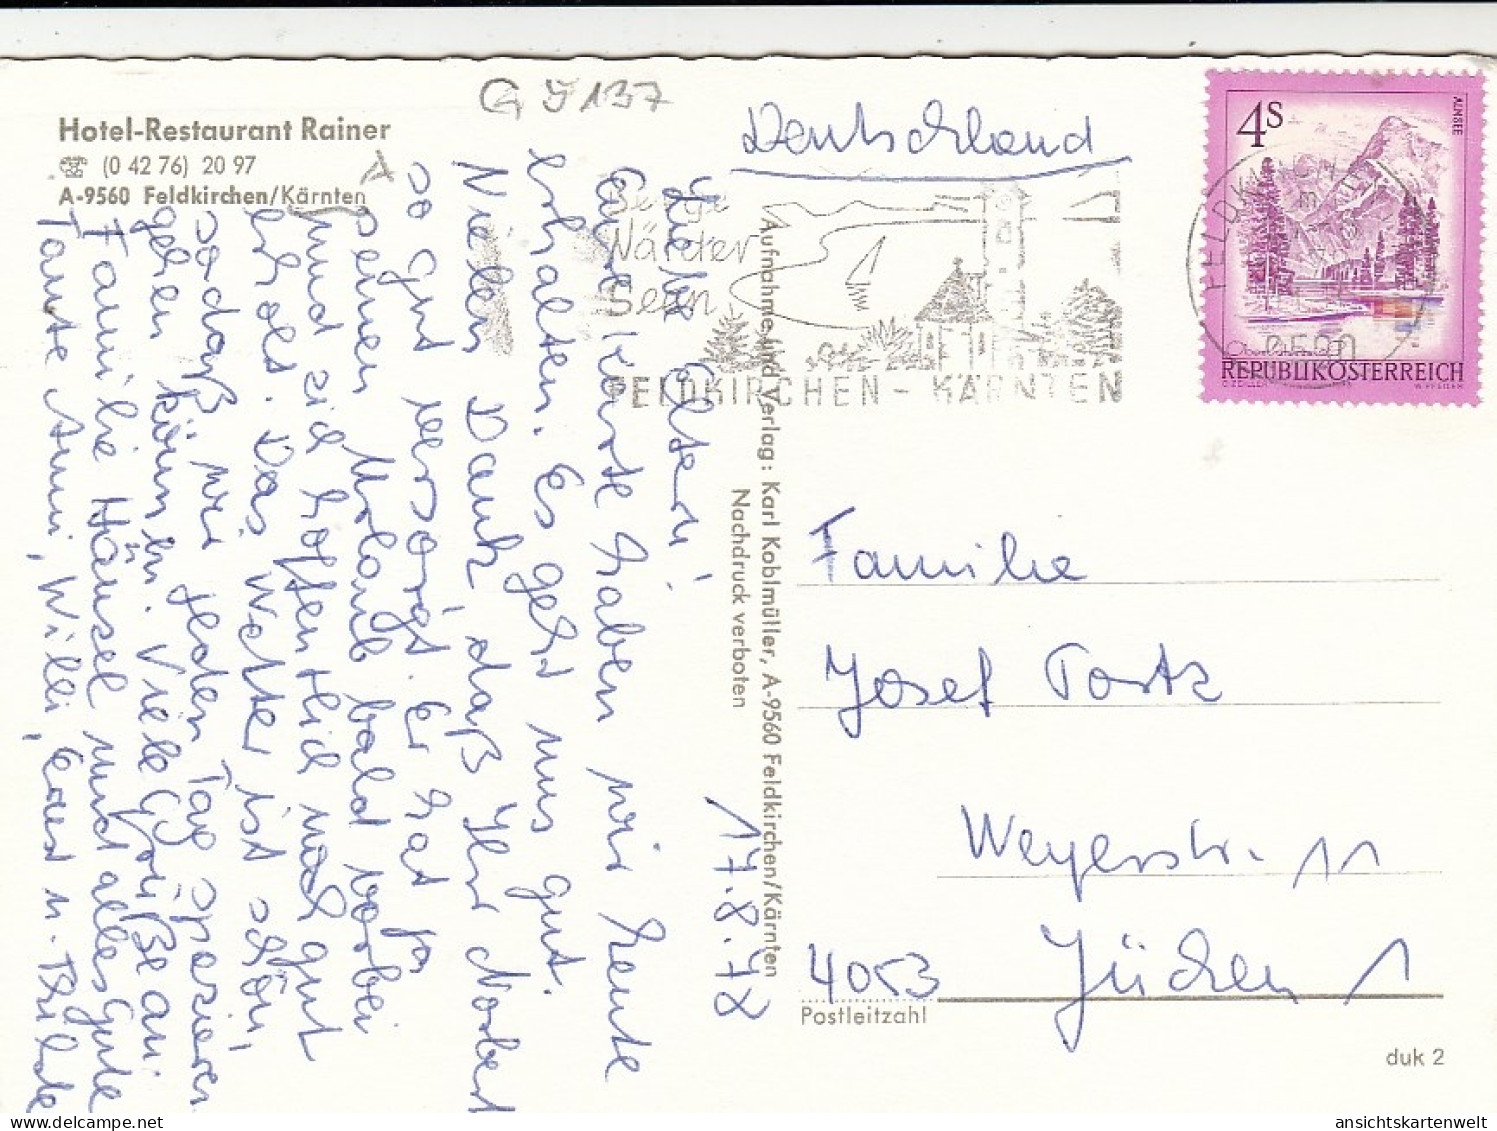 G J 137
Hotel-Restaurant Rainer
☎ (0 42 76) 20 97
A-9560 Feldkirchen/Kärnten
Deutschland
4S
ALMSEE
Oberösterreich
REPUBLIK ÖSTERREICH
FELDKIRCHEN
9560
Berge
Wälder
Seen
FELDKIRCHEN - KÄRNTEN
17.8.78
Liebe Eltern!
Eure Karte haben wir heute
erhalten. Es geht uns gut.
Vielen Dank, daß Ihr Norbert
so gut versorgt. Er hat ja
seinen Urlaub bald vorbei
und sich hoffentlich noch gut
erholt. Das Wetter ist schön,
sodaß wir jeden Tag spazieren
gehen können. Viele Grüße an
Familie Hänsel und alles Gute
Tante Anni, Willi, Ernst u. Thilde
Aufnahme und Verlag: Karl Koblmüller, A-9560 Feldkirchen/Kärnten
Nachdruck verboten
Familie
Josef
Weyerstr. 11
4053 Jüchen 1
Postleitzahl
duk 2
ansichtskartenwelt